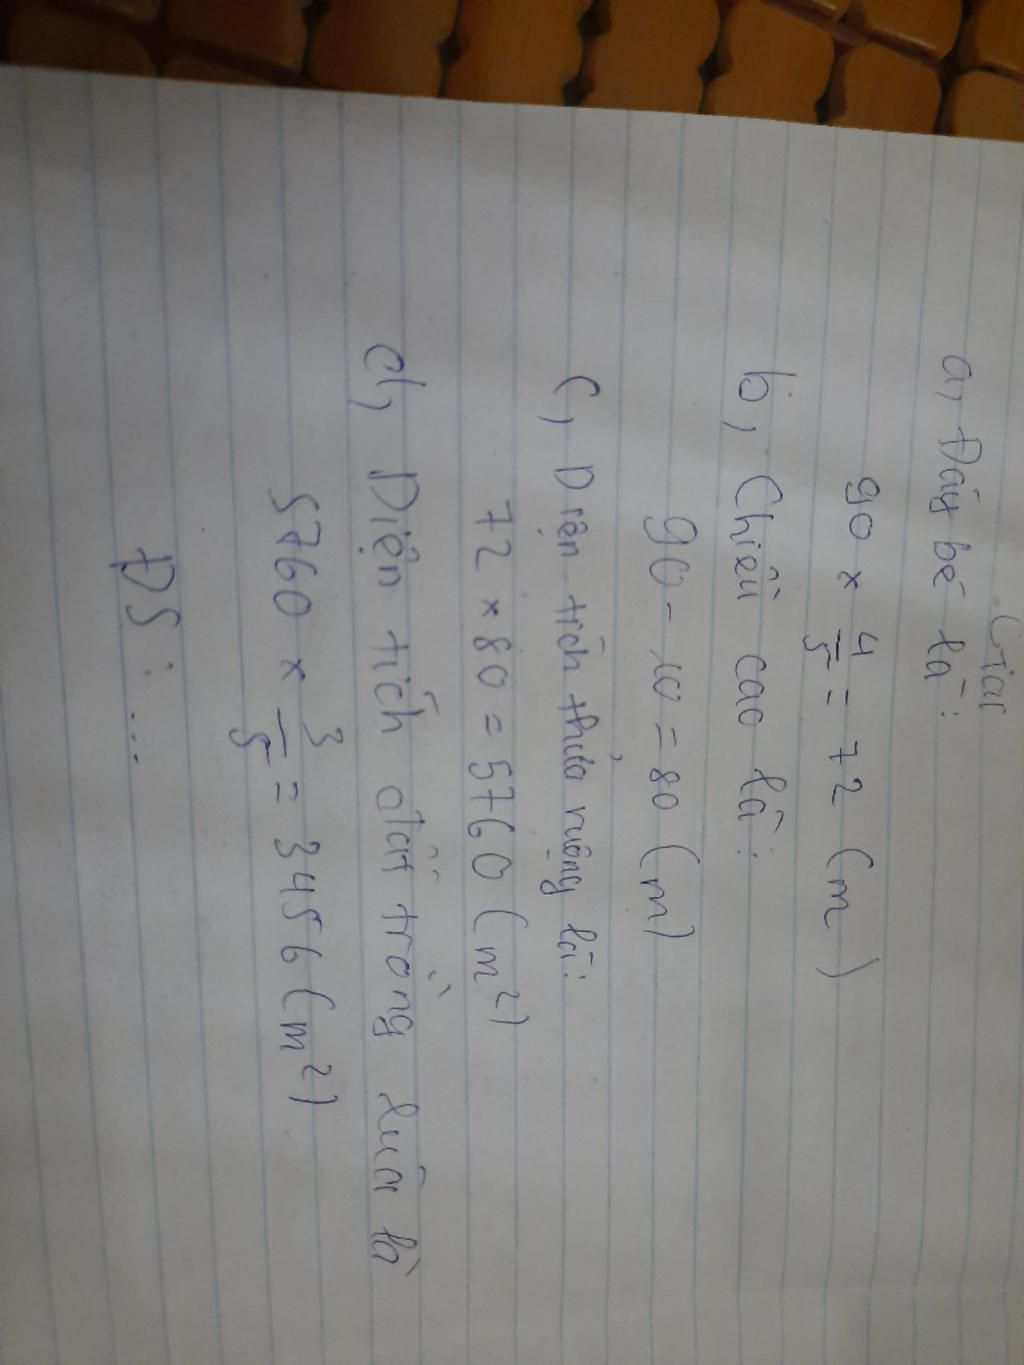 Giải
a, Đáy bé là:
90 x 4/5 = 72 (m)
b, Chiều cao là:
90 - 10 = 80 (m)
c, Diện tích thửa ruộng là:
72 x 80 = 5760 (m²)
d, Diện tích đất trồng lúa là
5760 x 3/5 = 3456 (m²)
ĐS: ...